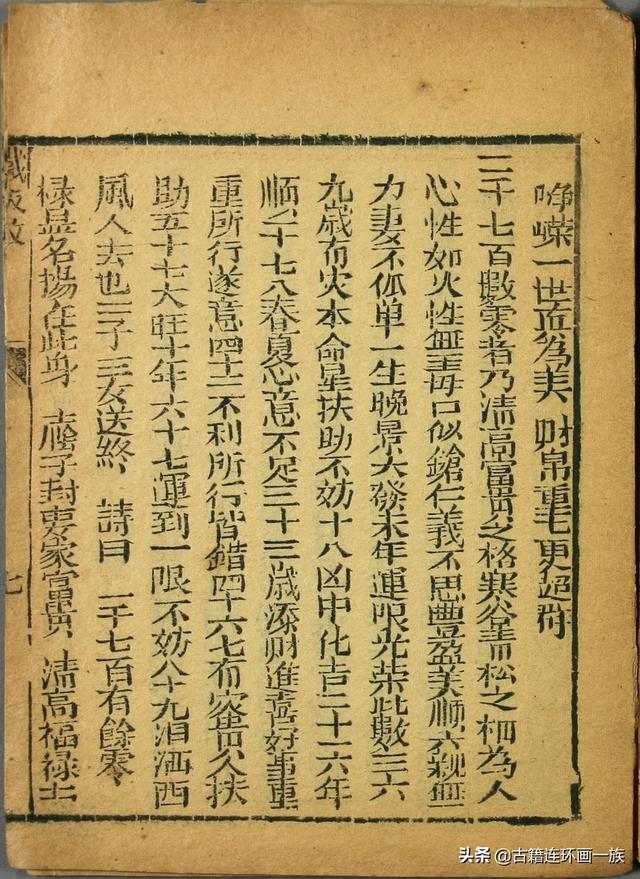 崢嶸一世正為美 財帛重重更超群
二千七百數零者乃清高富貴之格寒谷青松之柵為人
心性如火性無毒口似鎗仁義不思豊盈美順六親無
力妻不孤單一生晚景大發末年運限光荣此數三六
九歲有灾本命星扶助不妨十八凶中化吉二十六年
順二十七八春夏心意不足三十三歲添财進喜好事重
重所行遂意四十二不利所行皆錯四十六七有灾貴人扶
助五十七大旺十年六十七運到一限不妨八十九泪洒西
風人去也三子三女送終 詩曰 一千七百有餘零
禄是名揚在此身 子封妻家富貴 清高福禄士
鐵板數
七
头条 @古籍连环画一族